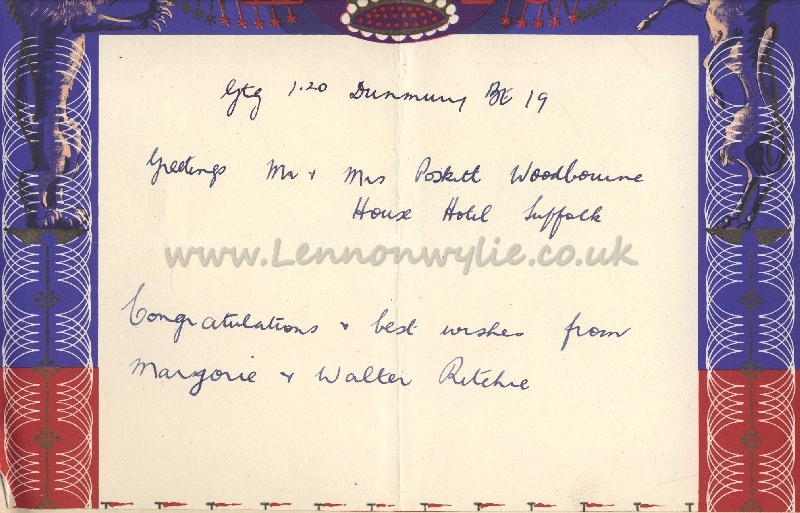 Gtg 1.20 Dunmurry BE 19
Greetings Mr + Mrs Poskitt Woodbourne
House Hotel Suffolk
www.Lennonwylie.co.uk
Congratulations + best wishes from
Margorie + Walter Ritchie